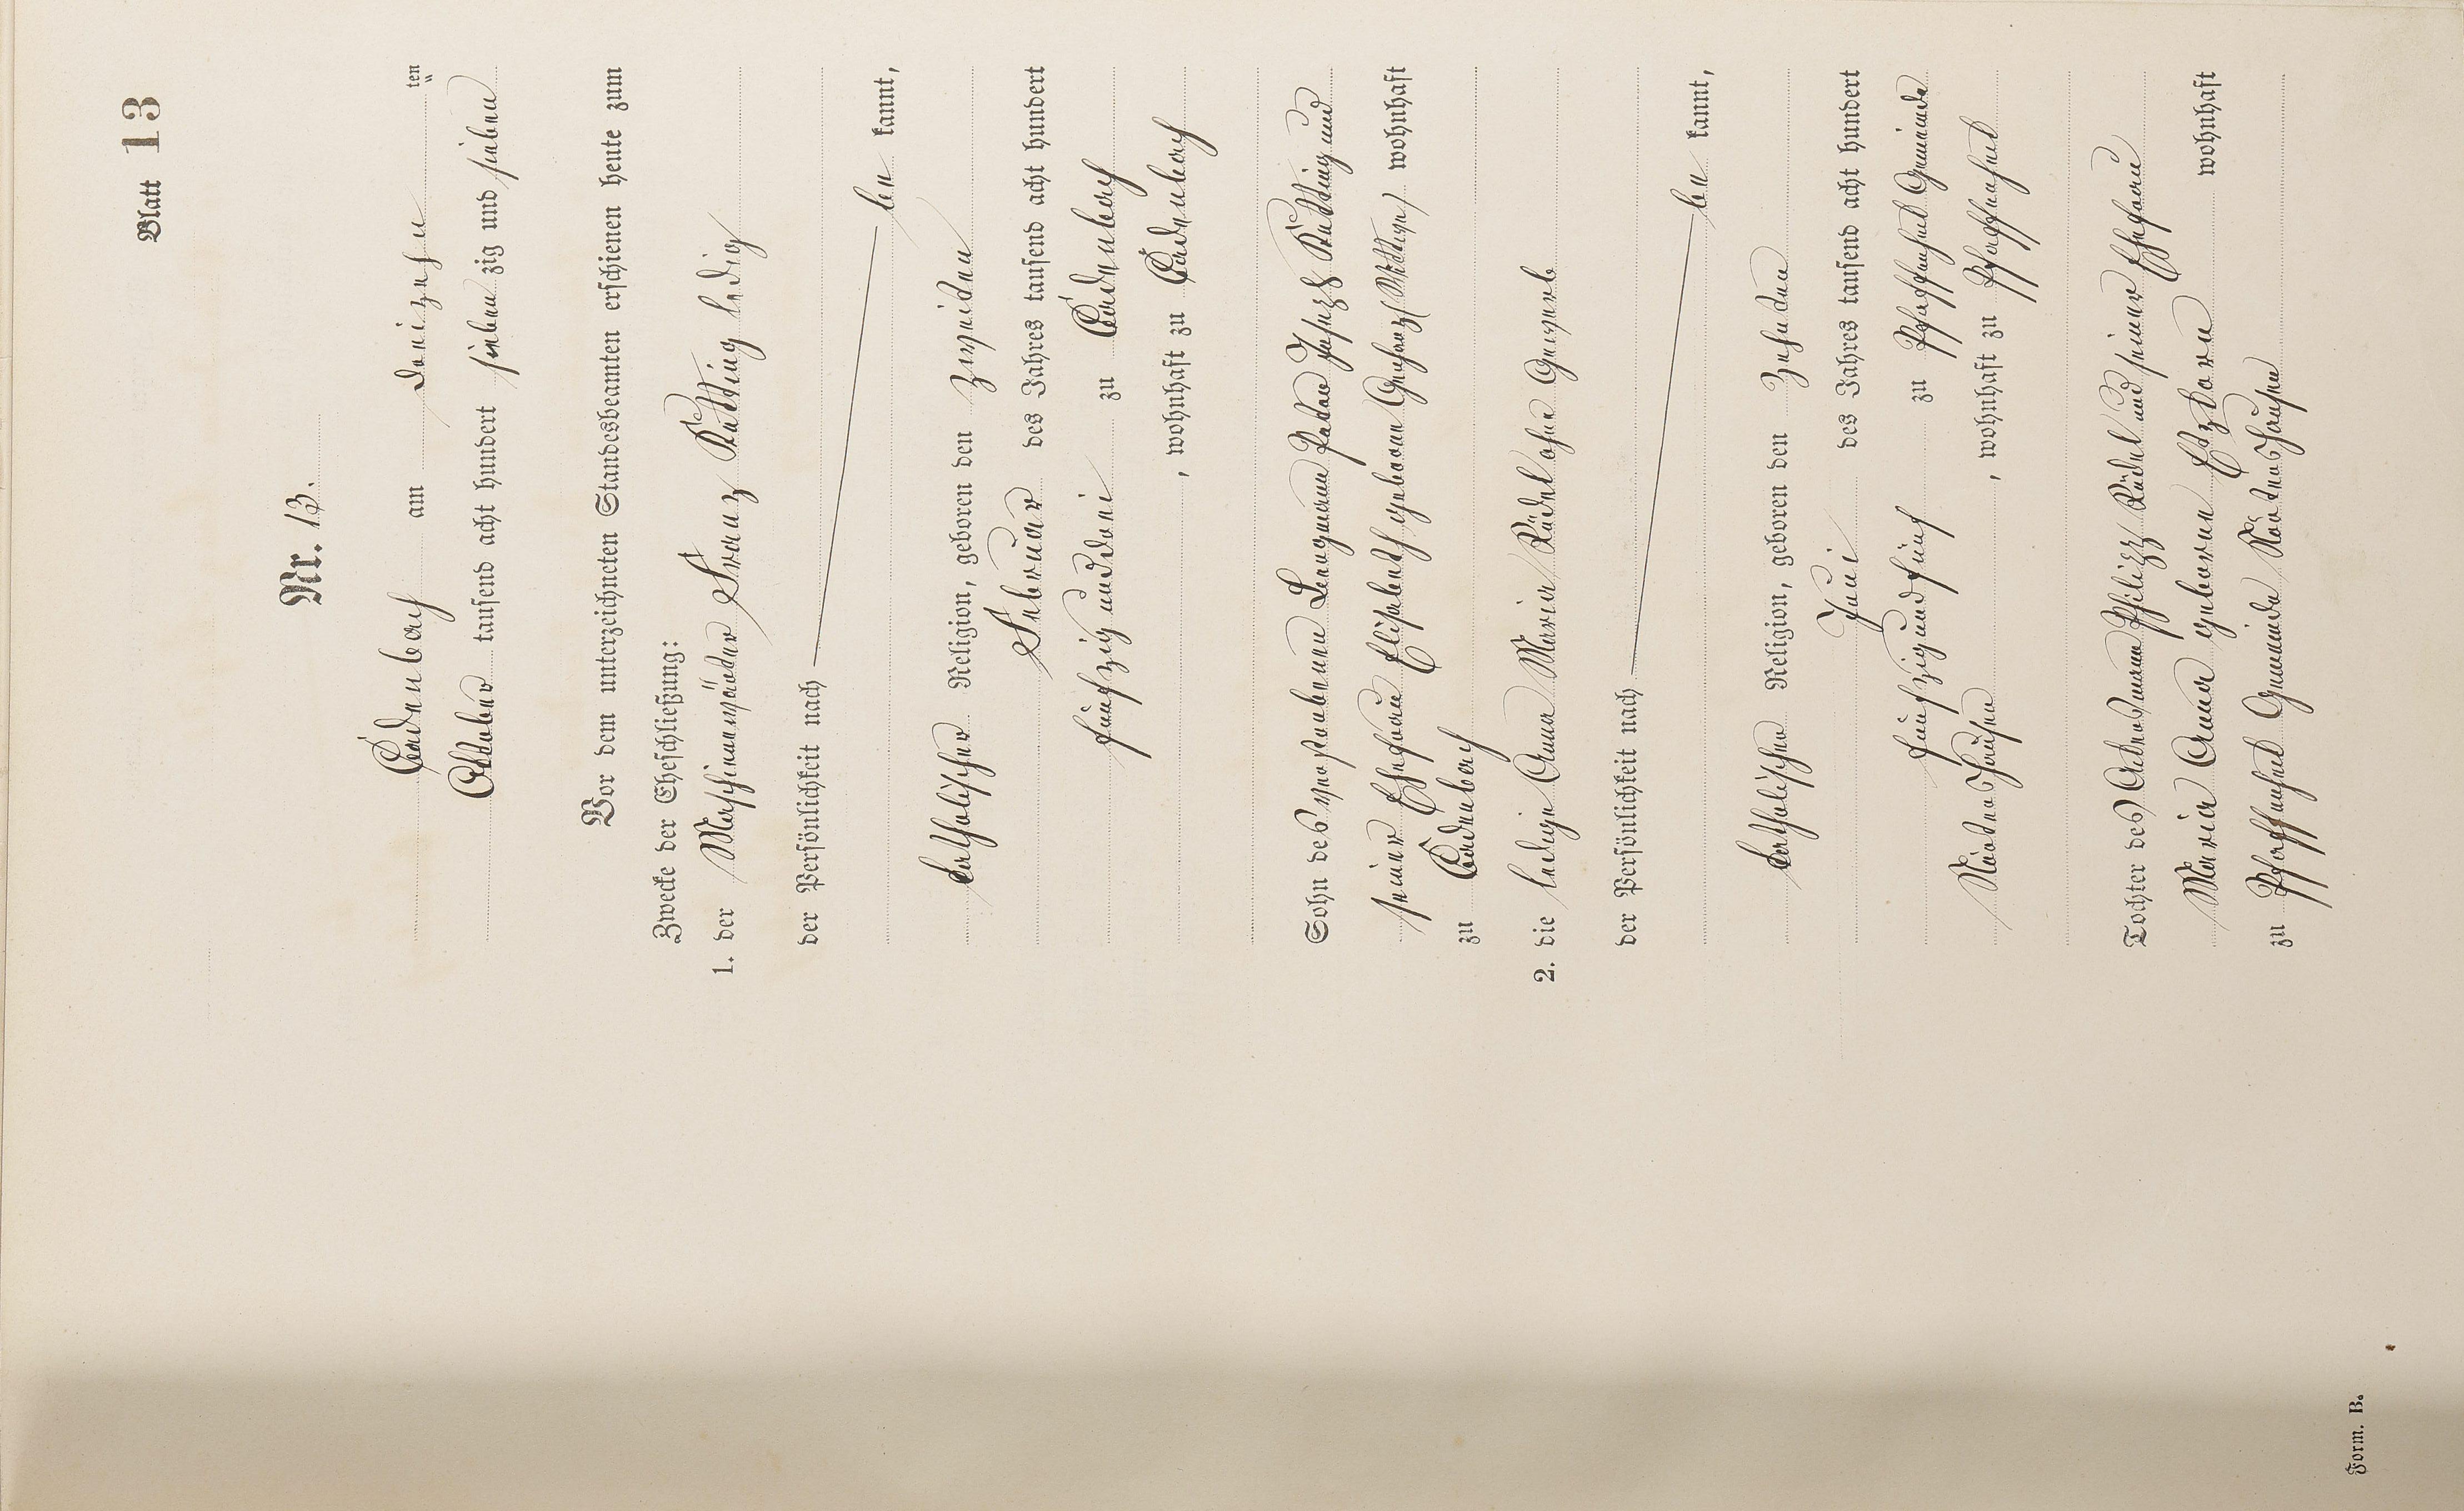 Blatt 13
Nr. 13.
Cadenbach am dreizehn ten
Oktober tausend acht hundert sieben zig und sieben
Vor dem unterzeichneten Standesbeamten erschienen heute zum
Zwecke der Eheschließung:
1. der Maschinenwärter Franz Kutting ledig
der Persönlichkeit nach
be kannt,
katholischer Religion, geboren den zweiten
Februar des Jahres tausend acht hundert
fünfzig und drei zu Cadenbach
, wohnhaft zu Cadenbach
Sohn des verstorbenen Bergmann Peter Joseph Kutting und
seiner Ehefrau Elisabeth geborene wohnhaft
zu Cadenbach
2. die ledige Anna Maria Rüdel ohne Gewerb
der Persönlichkeit nach
be kannt,
katholischer Religion, geboren den zehnten
Juni des Jahres tausend acht hundert
fünfzig und fünf zu Gemeinde
, wohnhaft zu
Tochter des Ackersmann Philipp Rüdel und seiner Ehefrau
Maria Anna geborene wohnhaft
zu Gemeinde
Form. B.